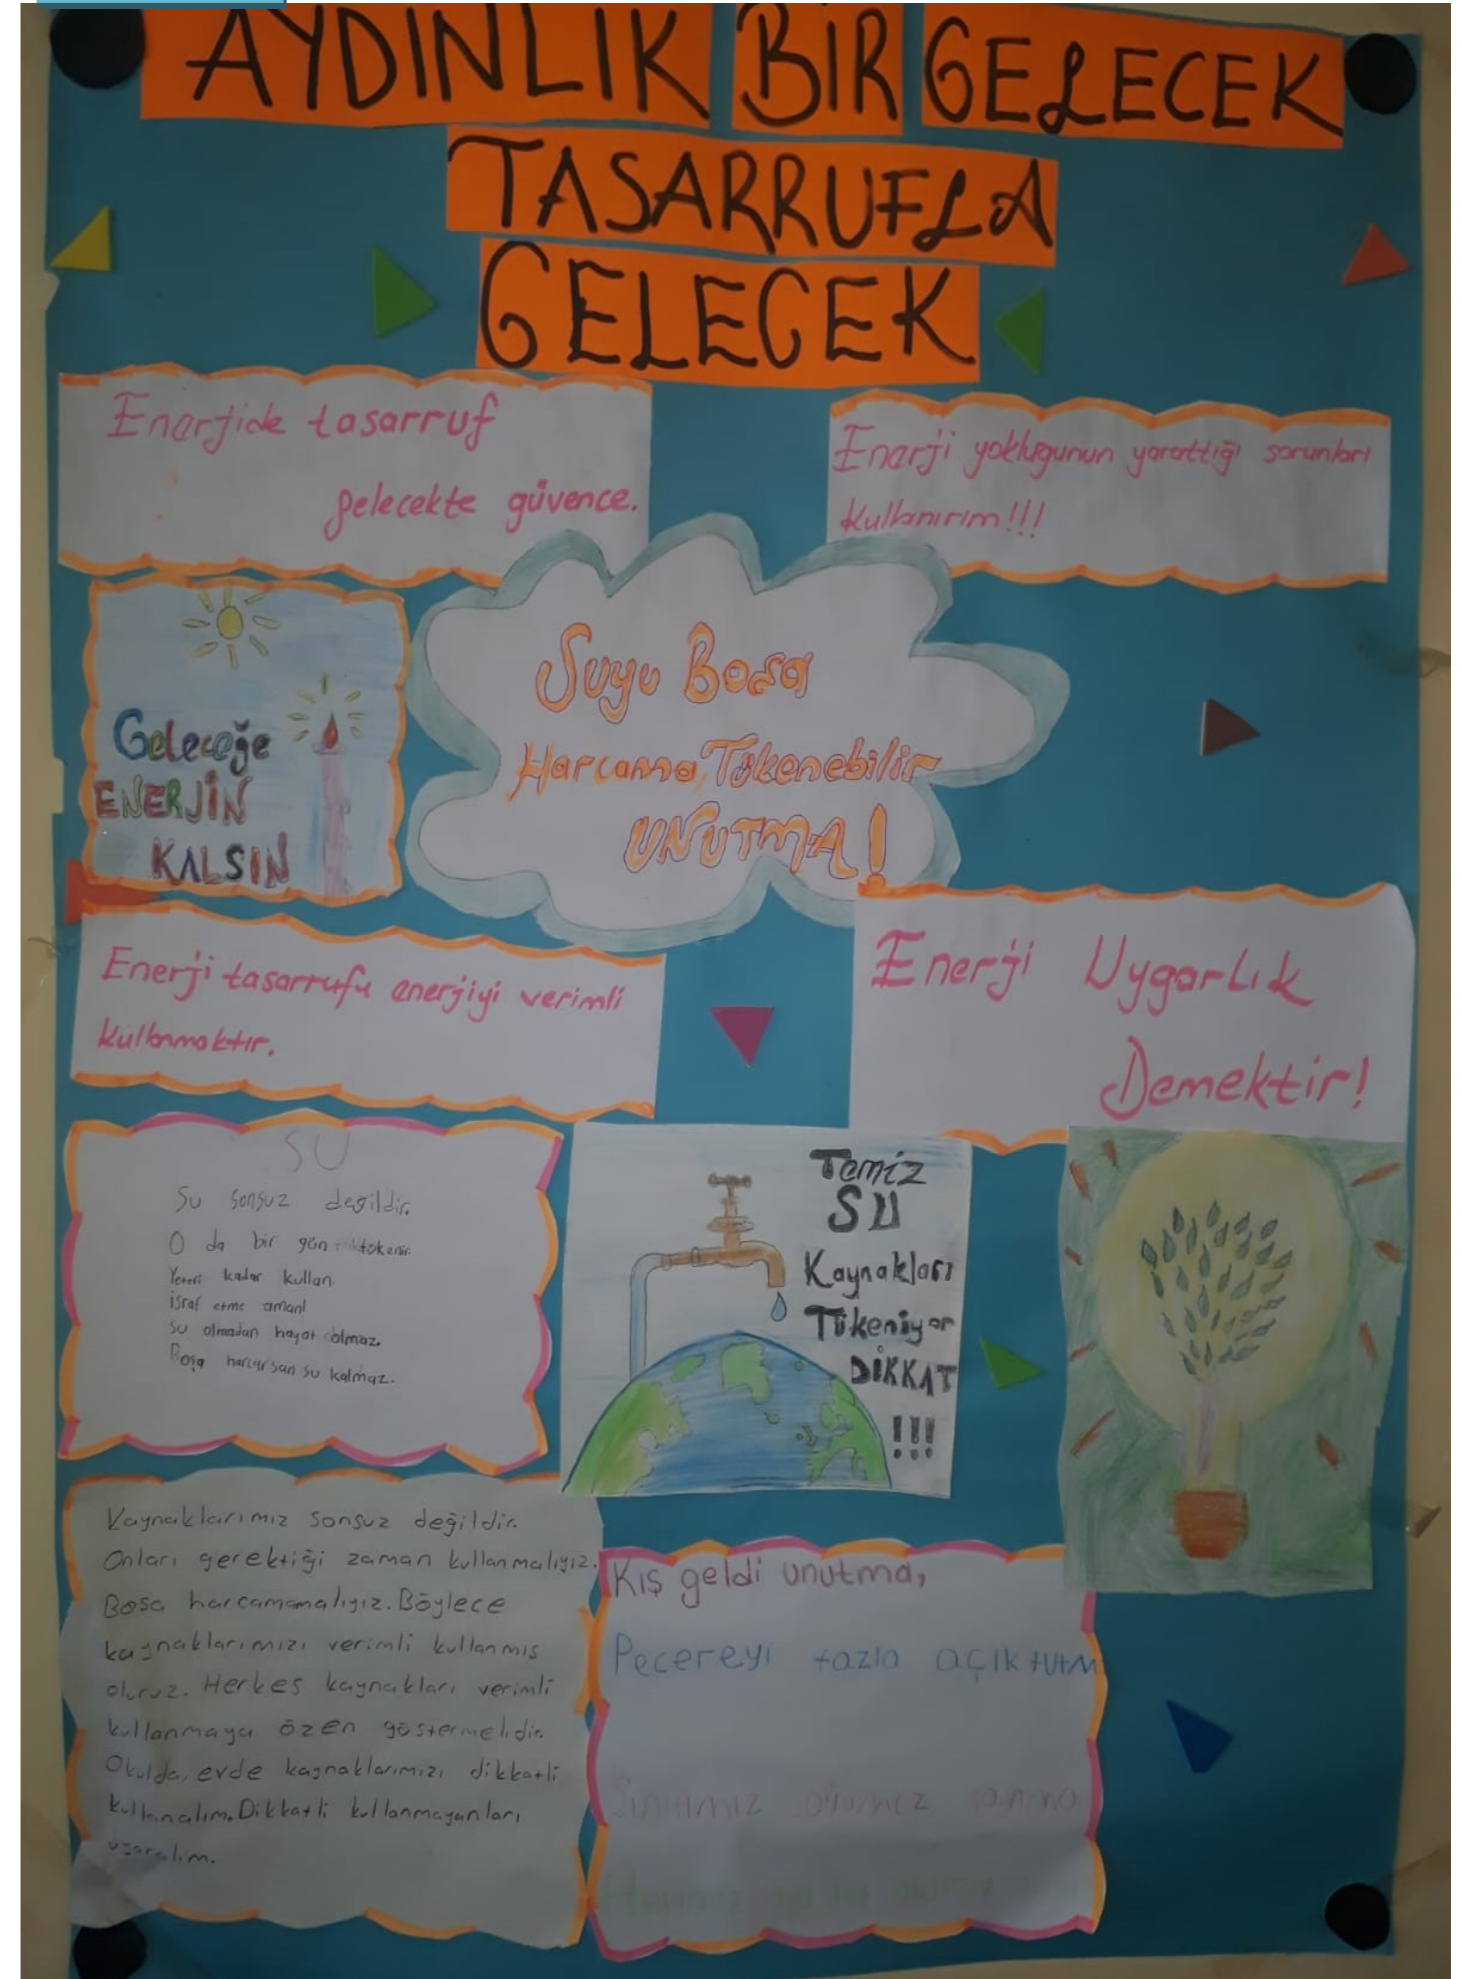 AYDINLIK BİR GELECEK
TASARRUFLA
GELECEK
Enerjide tasarruf
gelecekte güvence.
Enerji yoklugunun yarattığı sorunları
kullanırım!!!
Geleceğe
ENERJİN
KALSIN
Suyu Boşa
Harcama, Tükenebilir
UNUTMA!
Enerji tasarrufu enerjiyi verimli
kullanmaktır.
Enerji Uygarlık
Demektir!
SU
Su sonsuz degildir.
O da bir gün tükenir.
Yeteri kadar kullan.
israf etme aman!
Su olmadan hayat olmaz.
Boşa harcarsan su kalmaz.
Temiz
SU
Kaynakları
Tükeniyor
DİKKAT
!!!
Kaynaklarımız sonsuz değildir.
Onları gerektiği zaman kullanmalıyız.
Bosa harcamamalıyız. Böylece
kaynaklarımızı verimli kullanmış
oluruz. Herkes kaynakları verimli
kullanmaya özen göstermelidir.
Okulda, evde kaynaklarımızı dikkatli
kullanalım. Dikkatli kullanmayanları
uyaralım.
Kış geldi unutma,
Pecereyi fazla açık tutm
Sınıfımız